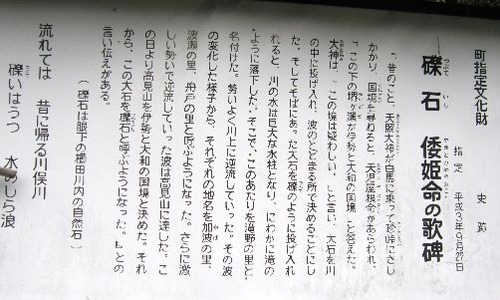 町指定文化財　史跡
礫石　倭姫命の歌碑
つぶて　いし　やまとひめのみこと
指定　平成3年9月25日
「昔のこと、天照大神が白馬に乗って珍峠にさし
かかり、国境を尋ねると、天児屋根命があらわれ、
「この下の堺ヶ瀬が伊勢と大和の国境」と答えた。
大神は、「この境は疑わしい。」と言い、大石を川
の中に投げ入れ、波のとどまる所で決めることにし
た。そしてそばにあった大石を礫のように投げ入れ
れると、川の水は巨大な水柱となり、にわかに滝の
ように落下した。そこで、このあたりを滝野の里と
名付けた。勢いよく川上に逆流していった。その波
の変化した様子から、それぞれの地名を加波の里、
波瀬の里、舟戸の里と呼ぶようになった。さらに激
しい勢いで逆流していった波は高見山に達した。こ
の日より高見山を伊勢と大和の国境と決めた。それ
から、この大石を礫石と呼ぶようになった。」との
言い伝えがある。
（礫石は眼下の櫛田川内の自然石）
流れては　昔に帰る川俣川
礫いはうつ　水のしら浪